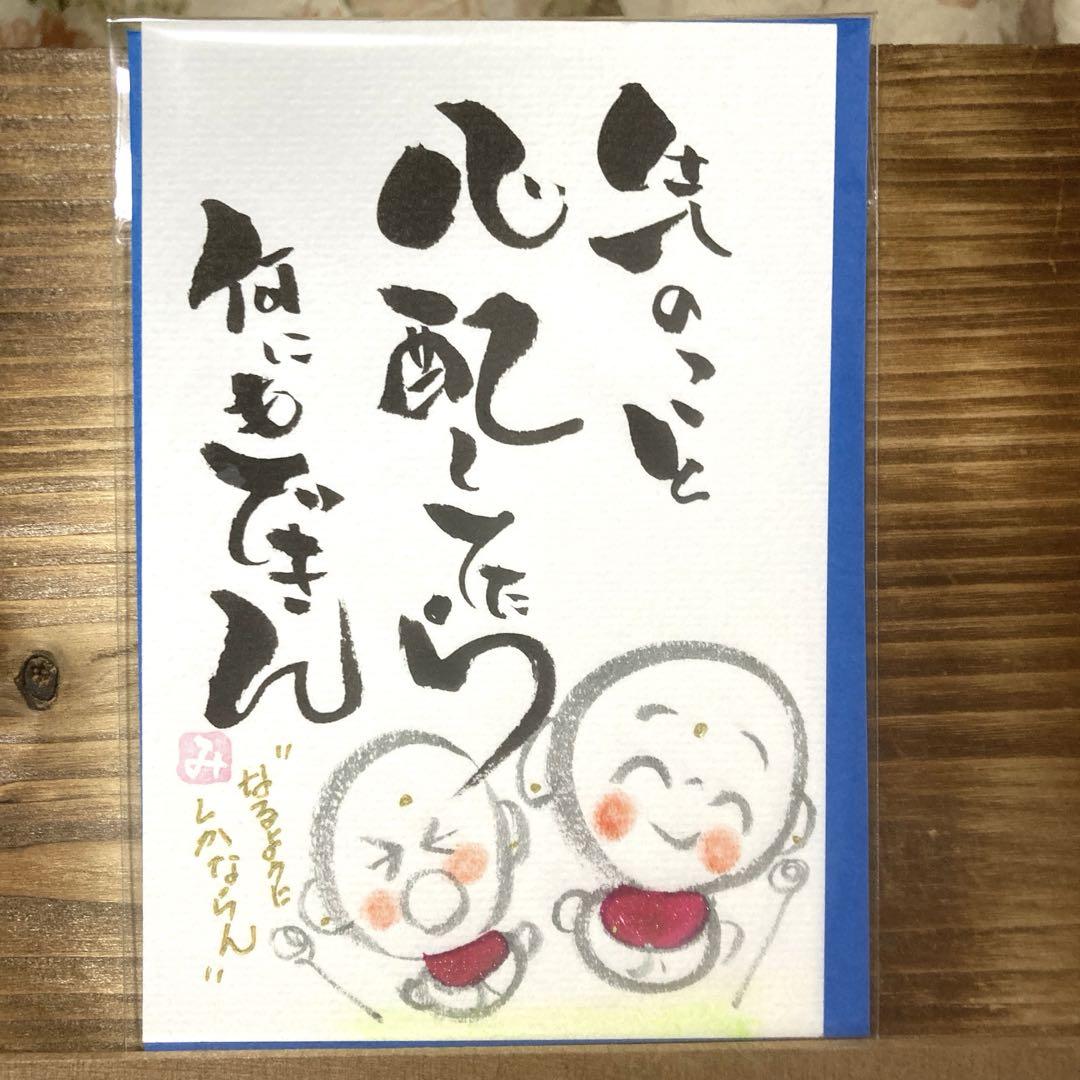 先のこと
心配してたら
何にもできん
"なるように
しかならん"
み